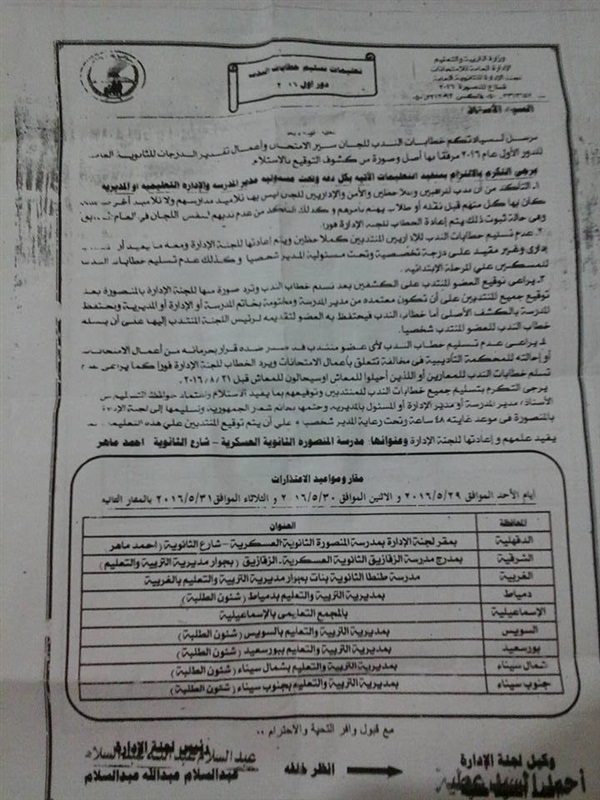 وزارة التربية والتعليم
الإدارة العامة للامتحانات
لجنة الإدارة للثانوية العامة
قطاع المنصورة ٢٠١٦
تعليمات تسليم خطابات الندب
دور أول ٢٠١٦
السيد الأستاذ
مرسل لسيادتكم خطابات الندب للجان سير الامتحان وأعمال تقدير الدرجات للثانوية العامة
للدور الأول عام ٢٠١٦ مرفقا بها أصل وصورة من كشوف التوقيع بالاستلام
يرجى التكرم بالالتزام بتنفيذ التعليمات الآتية بكل دقة وتحت مسئولية مدير المدرسة والإدارة التعليمية أو المديرية
١ـ التأكد من أن ندب المراقبين والملاحظين والأمن والإداريين للجان ليس بها تلاميذ مدارسهم ولا تلاميذ
كان بها كل منهم قبل نقله أو طلاب يهتم بأمرهم وكذلك التأكد من عدم ندبهم لنفس اللجان في العام
وفي حالة ثبوت ذلك يتم إعادة الخطاب للجنة الإدارة فورا
٢ـ عدم تسليم خطابات الندب للإداريين المنتدبين كملاحظين ويتم إعادتها للجنة الإدارة ومعه ما يفيد أو
إداري وغير مقيد على درجة تخصصية وتحت مسئولية المدير شخصيا وكذلك عدم تسليم خطابات الندب
للمرحلة الابتدائية
٣ـ يراعى توقيع العضو المنتدب على الكشفين بعد تسلم خطاب الندب وترد صورة منها للجنة الإدارة بالمنصورة بعد
توقيع جميع المنتدبين على أن تكون معتمدة من مدير المدرسة ومختومة بخاتم المدرسة أو الإدارة أو المديرية وتحتفظ
المدرسة بالكشف الأصلى أما خطاب الندب فيحتفظ به العضو لتقديمه لرئيس اللجنة المنتدب إليها على أن يسلم
خطاب الندب للعضو المنتدب شخصيا.
٤ـ يراعى عدم تسليم خطاب الندب لأى عضو منتدب قد صدر ضده قرار بحرمانه من أعمال الامتحانات
أو إحالته للمحكمة التأديبية فى مخالفة تتعلق بأعمال الامتحانات ويرد الخطاب للجنة الإدارة فورا كما يراعى عدم
تسلم خطابات الندب للمعارين أو اللذين أحيلوا للمعاش أو سيحالون للمعاش قبل ٢٠١٦/٨/٣١
يرجى التكرم بتسليم جميع خطابات الندب للمنتدبين وتوقيعهم بما يفيد الاستلام واعتماد حوافظ التسليم من
الأستاذ/ مدير المدرسة أو مدير الإدارة أو المسئول بالمديرية، وختمها بخاتم شعار الجمهورية، وتسليمها إلى لجنة الإدارة
بالمنصورة فى موعد غايته ٤٨ ساعة وتحت رعاية المدير شخصيا على أن يتم توقيع المنتدبين على هذه التعليمات
يفيد علمهم وإعادتها للجنة الإدارة وعنوانها: مدرسة المنصورة الثانوية العسكرية – شارع الثانوية احمد ماهر
مقار ومواعيد الاعتذارات
أيام الأحد الموافق ٢٠١٦/٥/٢٩ و الاثنين الموافق ٢٠١٦/٥/٣٠ و الثلاثاء الموافق ٢٠١٦/٥/٣١ بالمقار التالية
المحافظة العنوان
الدقهلية بمقر لجنة الإدارة بمدرسة المنصورة الثانوية العسكرية – شارع الثانوية (احمد ماهر)
الشرقية بمدرج مدرسة الزقازيق الثانوية العسكرية. الزقازيق (بجوار مديرية التربية والتعليم)
الغربية مدرسة طنطا الثانوية بنات بجوار مديرية التربية والتعليم بالغربية
دمياط بمديرية التربية والتعليم بدمياط (شئون الطلبة)
الإسماعيلية بالمجمع التعليمى بالإسماعيلية
السويس بمديرية التربية والتعليم بالسويس (شئون الطلبة)
بورسعيد بمديرية التربية والتعليم ببورسعيد (شئون الطلبة)
شمال سيناء بمديرية التربية والتعليم بشمال سيناء (شئون الطلبة)
جنوب سيناء بمديرية التربية والتعليم بجنوب سيناء (شئون الطلبة)
مع قبول وافر التحية والاحترام ،،
وكيل لجنة الإدارة
انظر خلفه
رئيس لجنة الإدارة
عبد السلام عبد الله عبد السلام
عبدالسلام عبدالله عبدالسلام